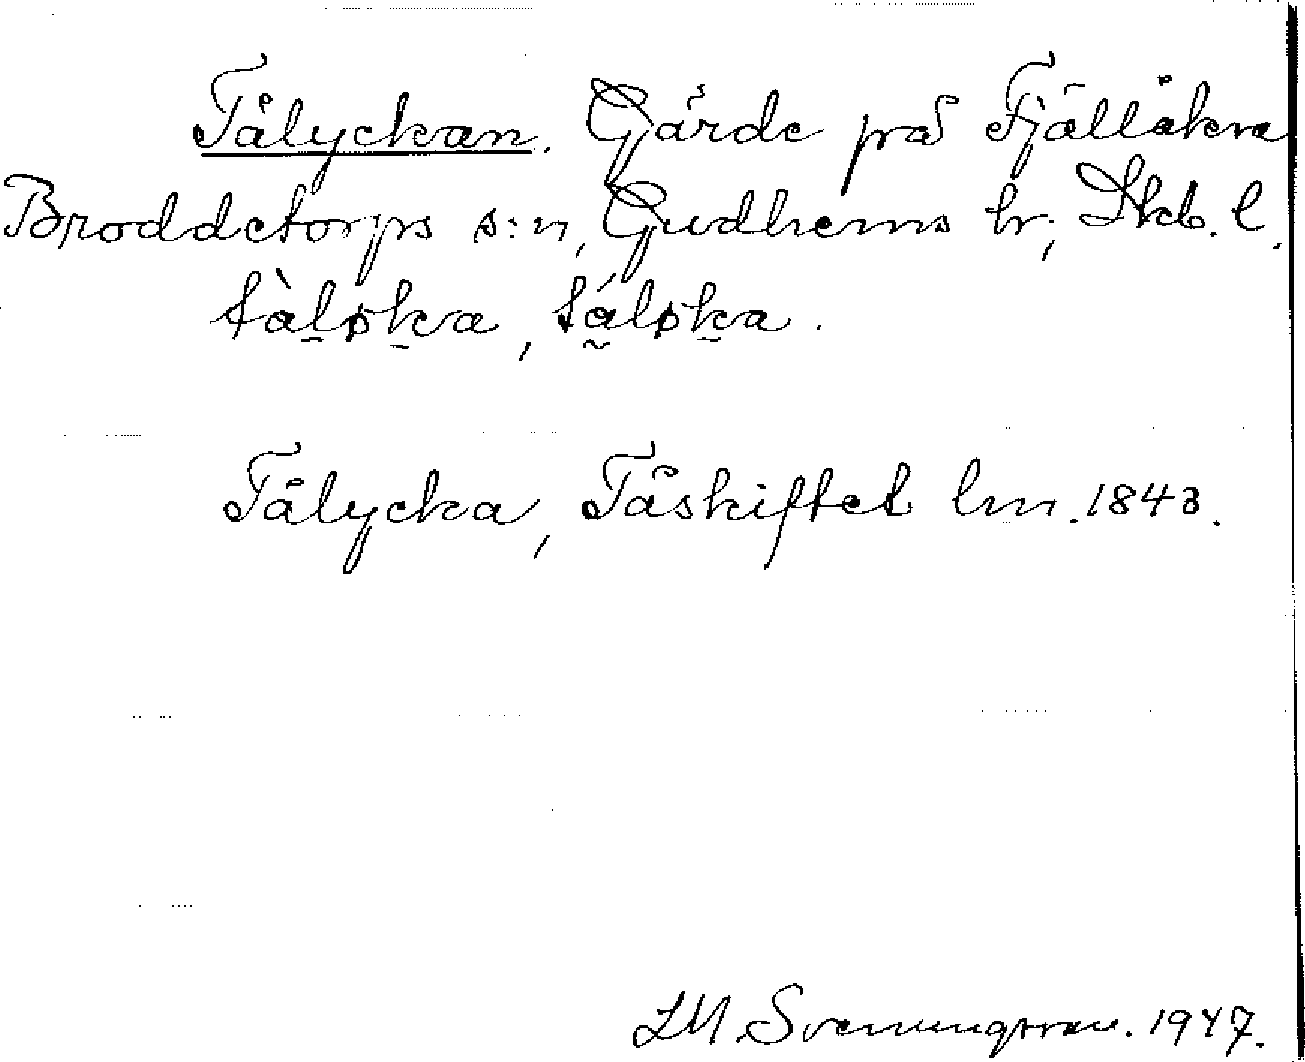 Tålyckan. Gärde på Fjällåkra
Broddetorps s:n, Gudhems hr, Skb. l.
tàløka, táløka.
Tålycka, Tåskiftet lm. 1843.
LM. Svenungsson. 1947.